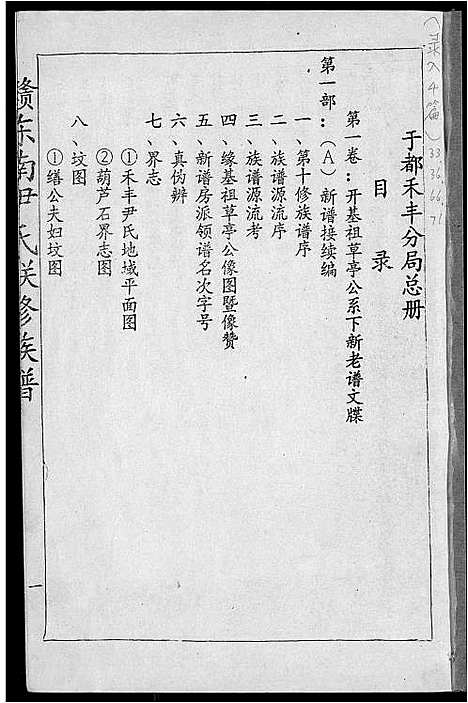 （录入4篇）33.36.66.71
于都禾丰分局总册
目录
第一卷：开基祖草亭公系下新老谱文牒
第一部：（A）新谱接续编
一、第十修族谱序
二、族谱源流序
三、族谱源流考
四、缘基祖草亭公像图暨像赞
五、新谱房派领谱名次字号
六、真伪辨
七、界志
①禾丰尹氏地域平面图
②葫芦石界志图
八、坟图
①缮公夫妇坟图
赣东南尹氏联修族谱
一